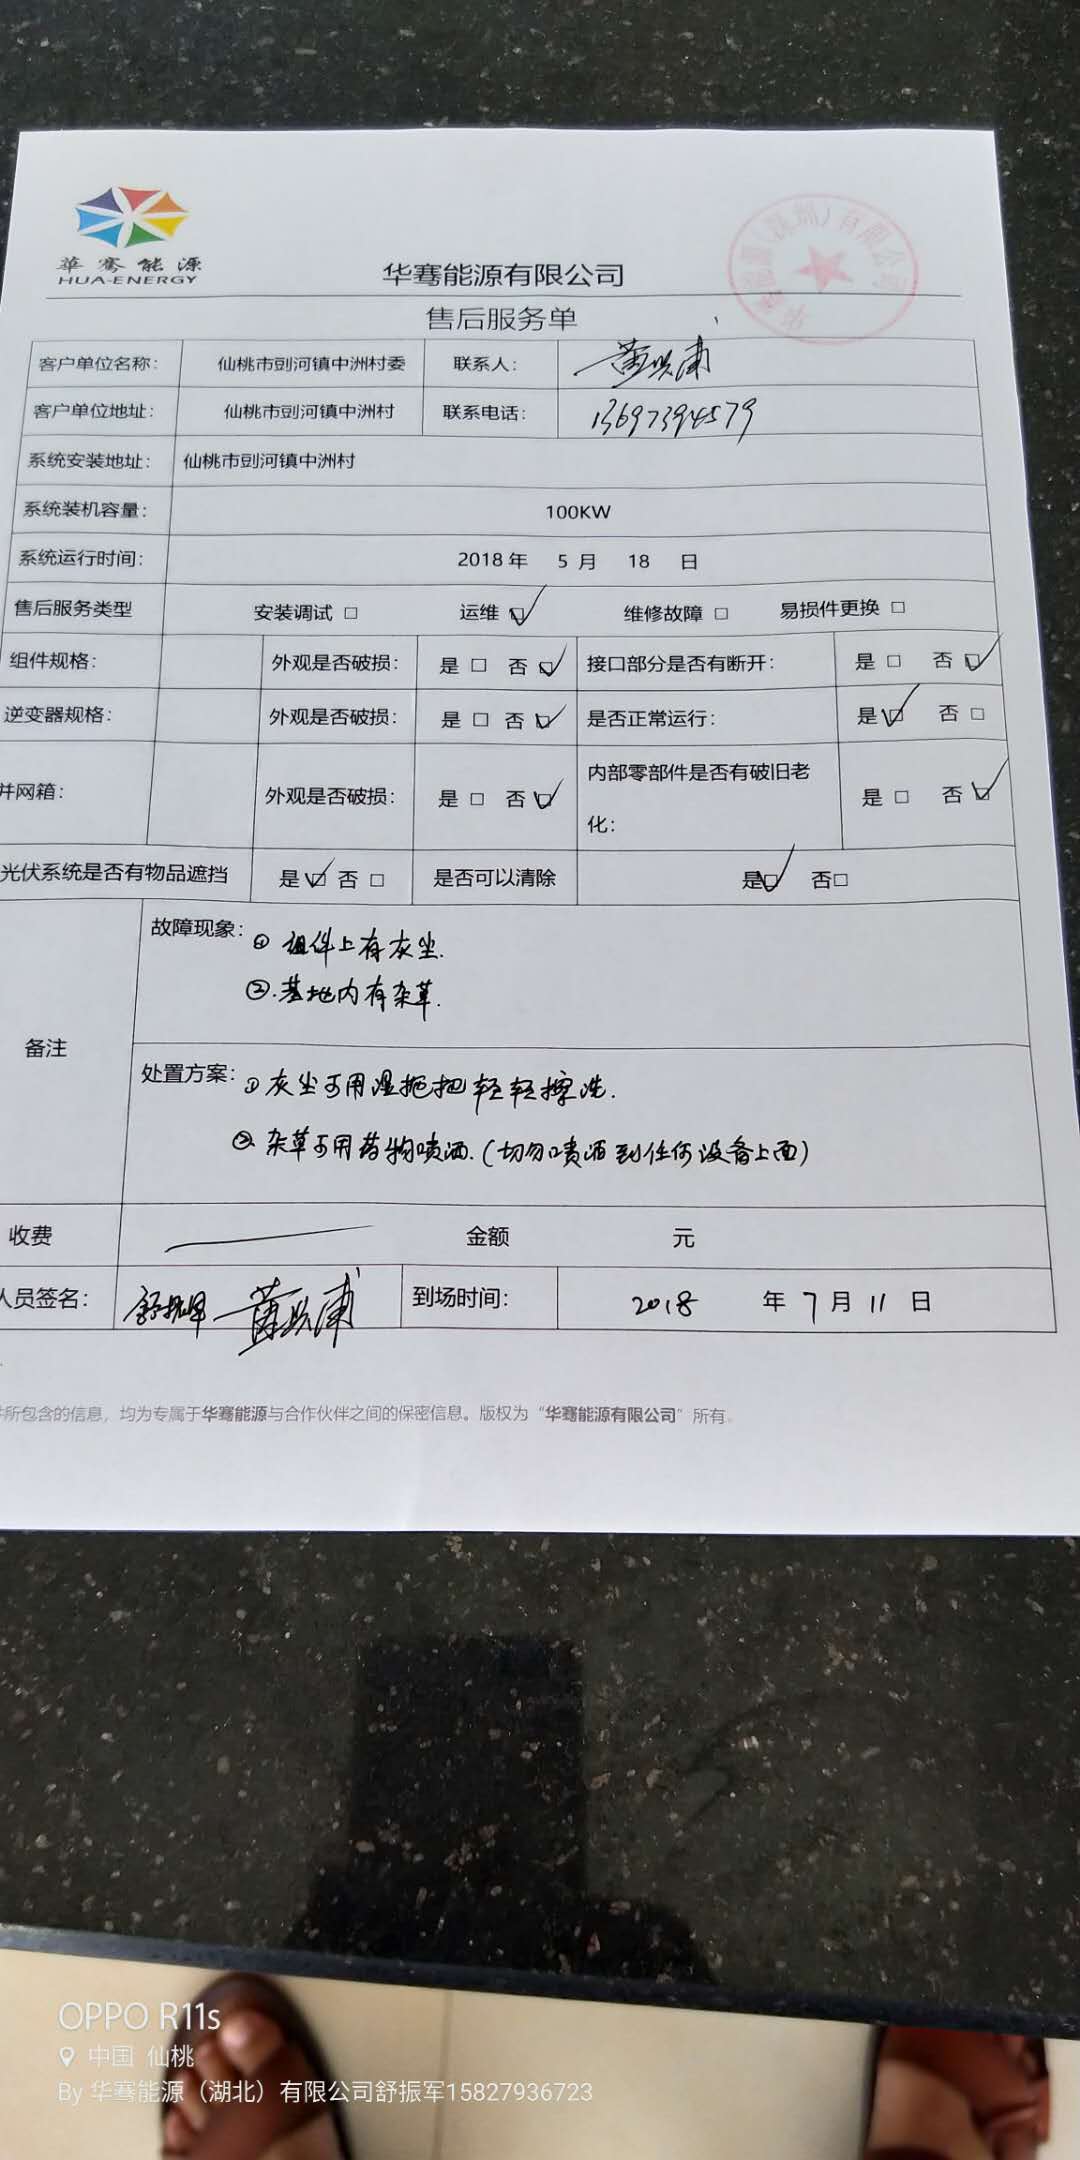 華骞能源
HUA-ENERGY
华骞能源有限公司
售后服务单
客户单位名称: 仙桃市剅河镇中洲村委 联系人:
客户单位地址: 仙桃市剅河镇中洲村 联系电话: 13697394579
系统安装地址: 仙桃市剅河镇中洲村
系统装机容量: 100KW
系统运行时间: 2018 年 5 月 18 日
售后服务类型 安装调试 □ 运维 ☑ 维修故障 □ 易损件更换 □
组件规格: 外观是否破损: 是 □ 否 ☑ 接口部分是否有断开: 是 □ 否 ☑
逆变器规格: 外观是否破损: 是 □ 否 ☑ 是否正常运行: 是 ☑ 否 □
并网箱: 外观是否破损: 是 □ 否 ☑ 内部零部件是否有破旧老
化: 是 □ 否 ☑
光伏系统是否有物品遮挡 是 ☑ 否 □ 是否可以清除 是☑ 否□
备注
故障现象: ① 组件上有灰尘.
②.基地内有杂草.
处置方案: ① 灰尘可用湿拖把轻轻擦洗.
② 杂草可用药物喷洒.(切勿喷洒到任何设备上面)
收费 金额 元
人员签名: 舒振军 到场时间: 2018 年 7 月 11 日
所包含的信息，均为专属于华骞能源与合作伙伴之间的保密信息。版权为“华骞能源有限公司”所有。
OPPO R11s
中国 仙桃
By 华骞能源（湖北）有限公司舒振军15827936723